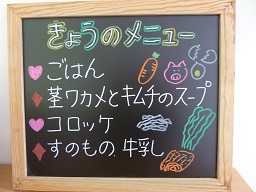 きょうのメニュー
ごはん
茎ワカメとキムチのスープ
コロッケ
すのもの、牛乳